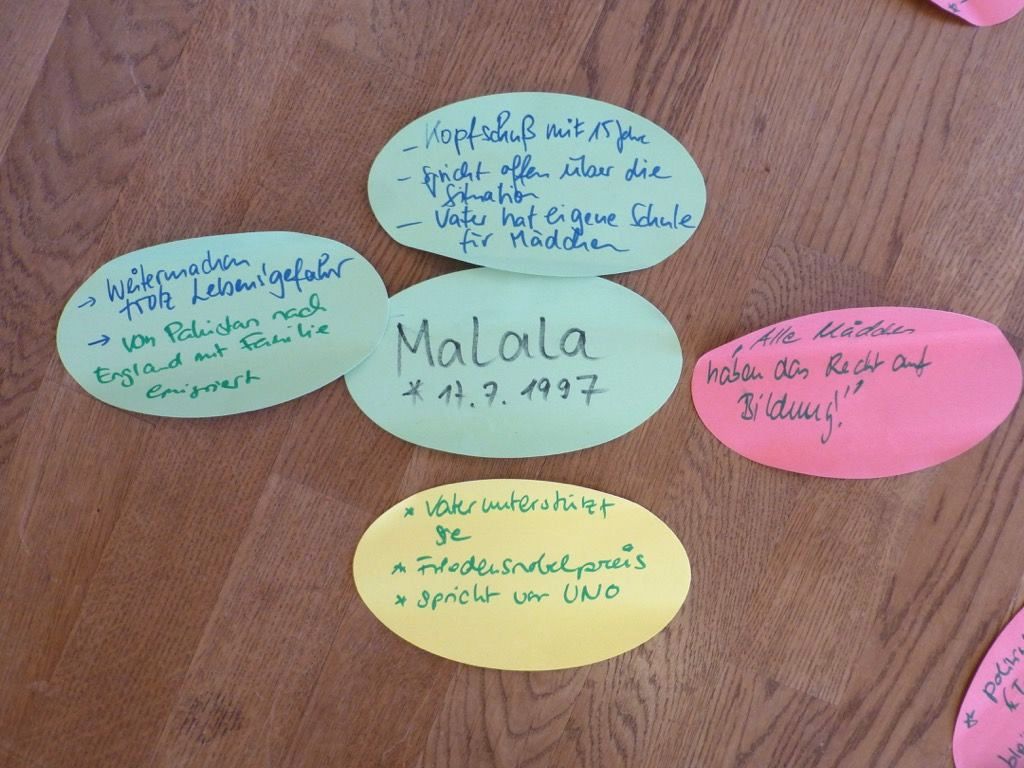 – Kopfschuß mit 15 Jahre
– spricht offen über die
Situation
– Vater hat eigene Schule
für Mädchen
→ Weitermachen
trotz Lebensgefahr
→ von Pakistan nach
England mit Familie
emigriert
Malala
* 17.7.1997
„Alle Mädchen
haben das Recht auf
Bildung!"
* Vater unterstützt
sie
* Friedensnobelpreis
* spricht vor UNO
*